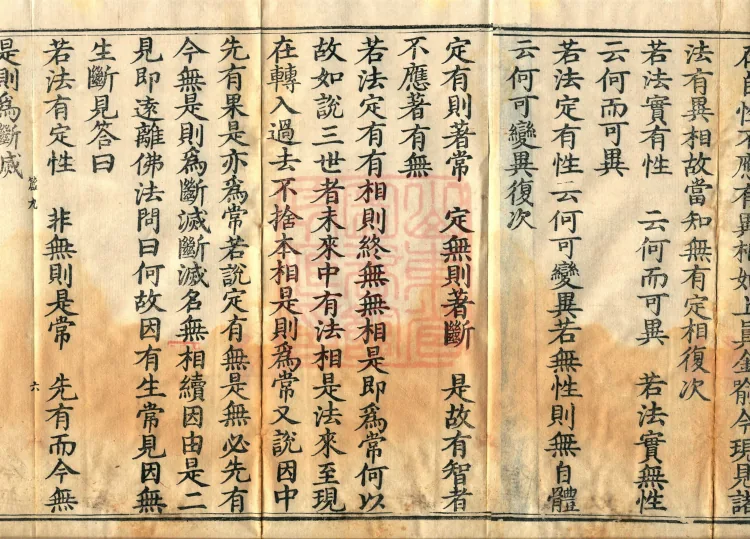 在自性不應有異相如上具金喻今現見諸
法有異相故當知無有定相復次
若法實有性　云何而可異　若法實無性
云何而可異
若法定有性云何可變異若無性則無自體
云何可變異復次
定有則著常　定無則著斷　是故有智者
不應著有無
若法定有有相則終無無相是即爲常何以
故如說三世者未來中有法相是法來至現
在轉入過去不捨本相是則爲常又說因中
先有果是亦爲常若說定有無是無必先有
今無是則爲斷滅斷滅名無相續因由是二
見即遠離佛法問曰何故因有生常見因無
生斷見答曰
若法有定性　非無則是常　先有而今無
九　六
是則爲斷滅